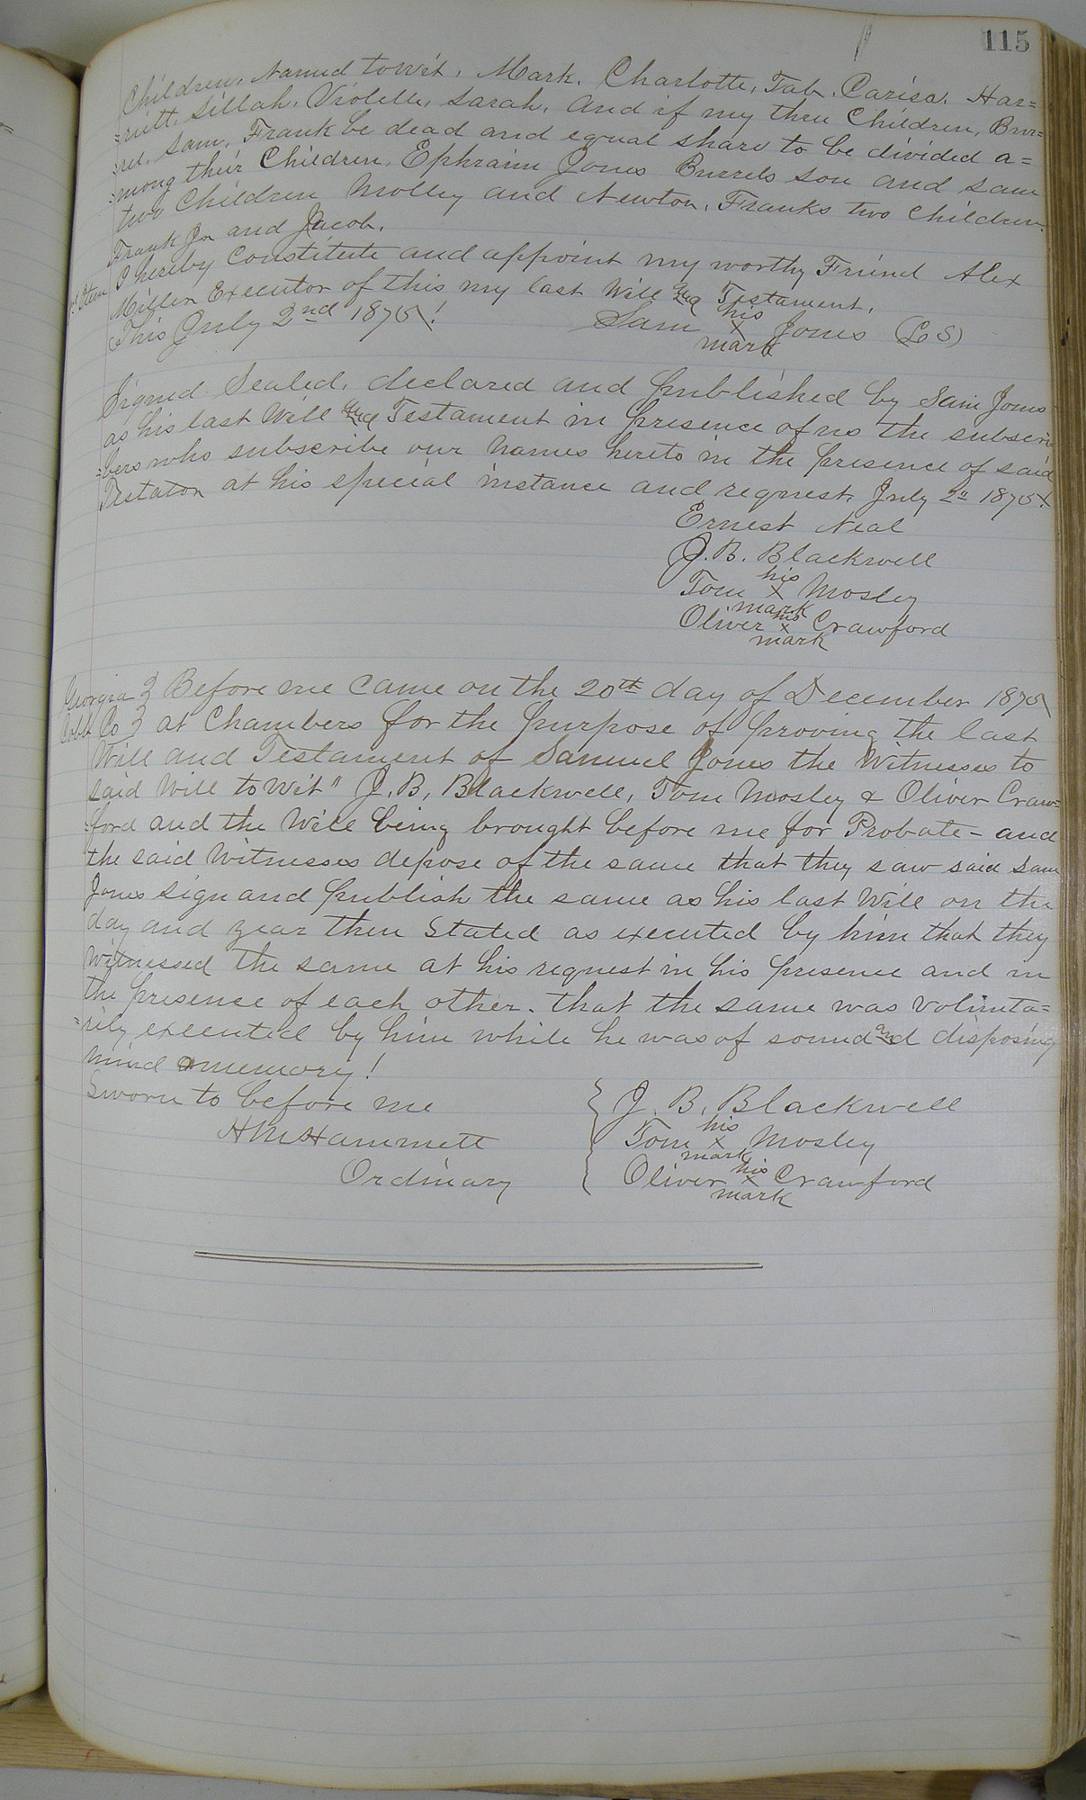 115
Children, Named towit, Mark. Charlotte, Tab. Carisa. Har=
=riett, Sillah. Violelle, Sarah. And if my three Children, Bur=
=rel, Sam, Frank be dead and equal share to be divided a=
=mong their Children, Ephraim Jones Burrels son and Sam
two Children Molley and Newton, Franks two Children
Frank Jr and Jacob.
Item I hereby Constitute and appoint my worthy Friend Alex
Miller Executor of this my last Will and Testament.
This July 2nd 1875! Sam his X mark Jones (L S)
Signed Sealed, declared and published by Sam Jones
as his last Will and Testament in presence of us the subscri
=bers who subscribe our names hereto in the presence of said
Testator at his special instance and request, July 2d 1875.
Ernest Neal
J. B. Blackwell
Tom his X mark Mosley
Oliver his X mark Crawford
Georgia } Before me came on the 20th day of December 1875
Cobb Co } at Chambers for the purpose of proving the last
Will and Testament of Samuel Jones the Witnesses to
said Will towit" J. B. Blackwell, Tom Mosley & Oliver Craw=
=ford and the Will being brought before me for Probate - and
the said Witnesses depose of the same that they saw said Sam
Jones sign and publish the same as his last Will on the
day and year then Stated as executed by him that they
Witnessed the same at his request in his presence and in
the presence of each other. that the same was volunta=
=rily executed by him while he was of sound and disposing
mind memory!
Sworn to before me { J. B. Blackwell
H M Hammett { Tom his X mark Mosley
Ordinary { Oliver his X mark Crawford